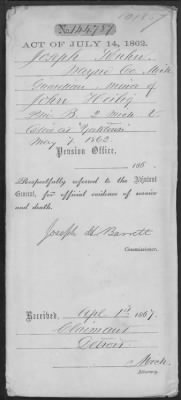 No 144757
ACT OF JULY 14, 1862.
Joseph Kuhn
Wayne Co. Mich
Guardian, minor of
John
Priv B. 2 Mich C
May 7 1862
Pension Office,
186
Respectfully referred to the Adjutant
General, for official evidence of service
and death.
Joseph H Barrett
Commissioner.
Received, Apl 1st 1867.
Claimant
Detroit
Mich.
Attorney.